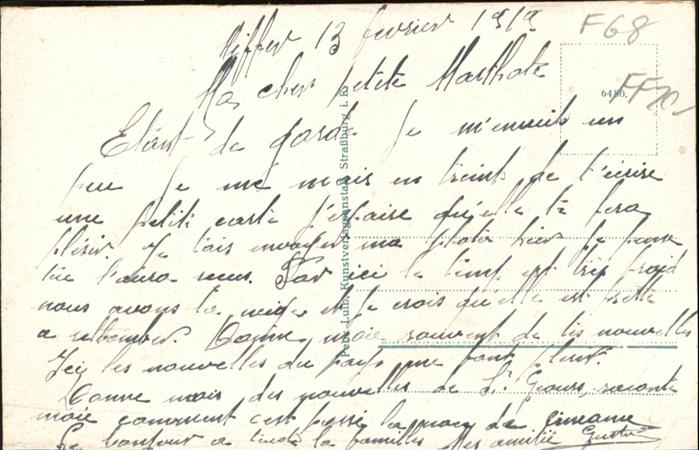 13 fevrier 1919
F68
Ma cher petite Marthote
FF70
6480.
Etant de garde je m'ennuis un
peu je me mais en traint de t'ecrire
une petite carte j'espaire qu'elle te fera
plésir. Je t'ais envoyer ma photo hier je pense
tu l'aura recus. Par ici le temp est tres froid
nous avons la neige et je crois qu'elle est prette
a retomber. Donne moie souvent de tes nouvelles
Ici les nouvelles du pays me font plesir.
Donne mois des nouvelles de St Geours, raconte
moie comment c'est passé la noce de
Le bonjour a toute la familles Mes amitié Gustave
Luib, Kunstverlagsanstalt, Straßburg i. E.